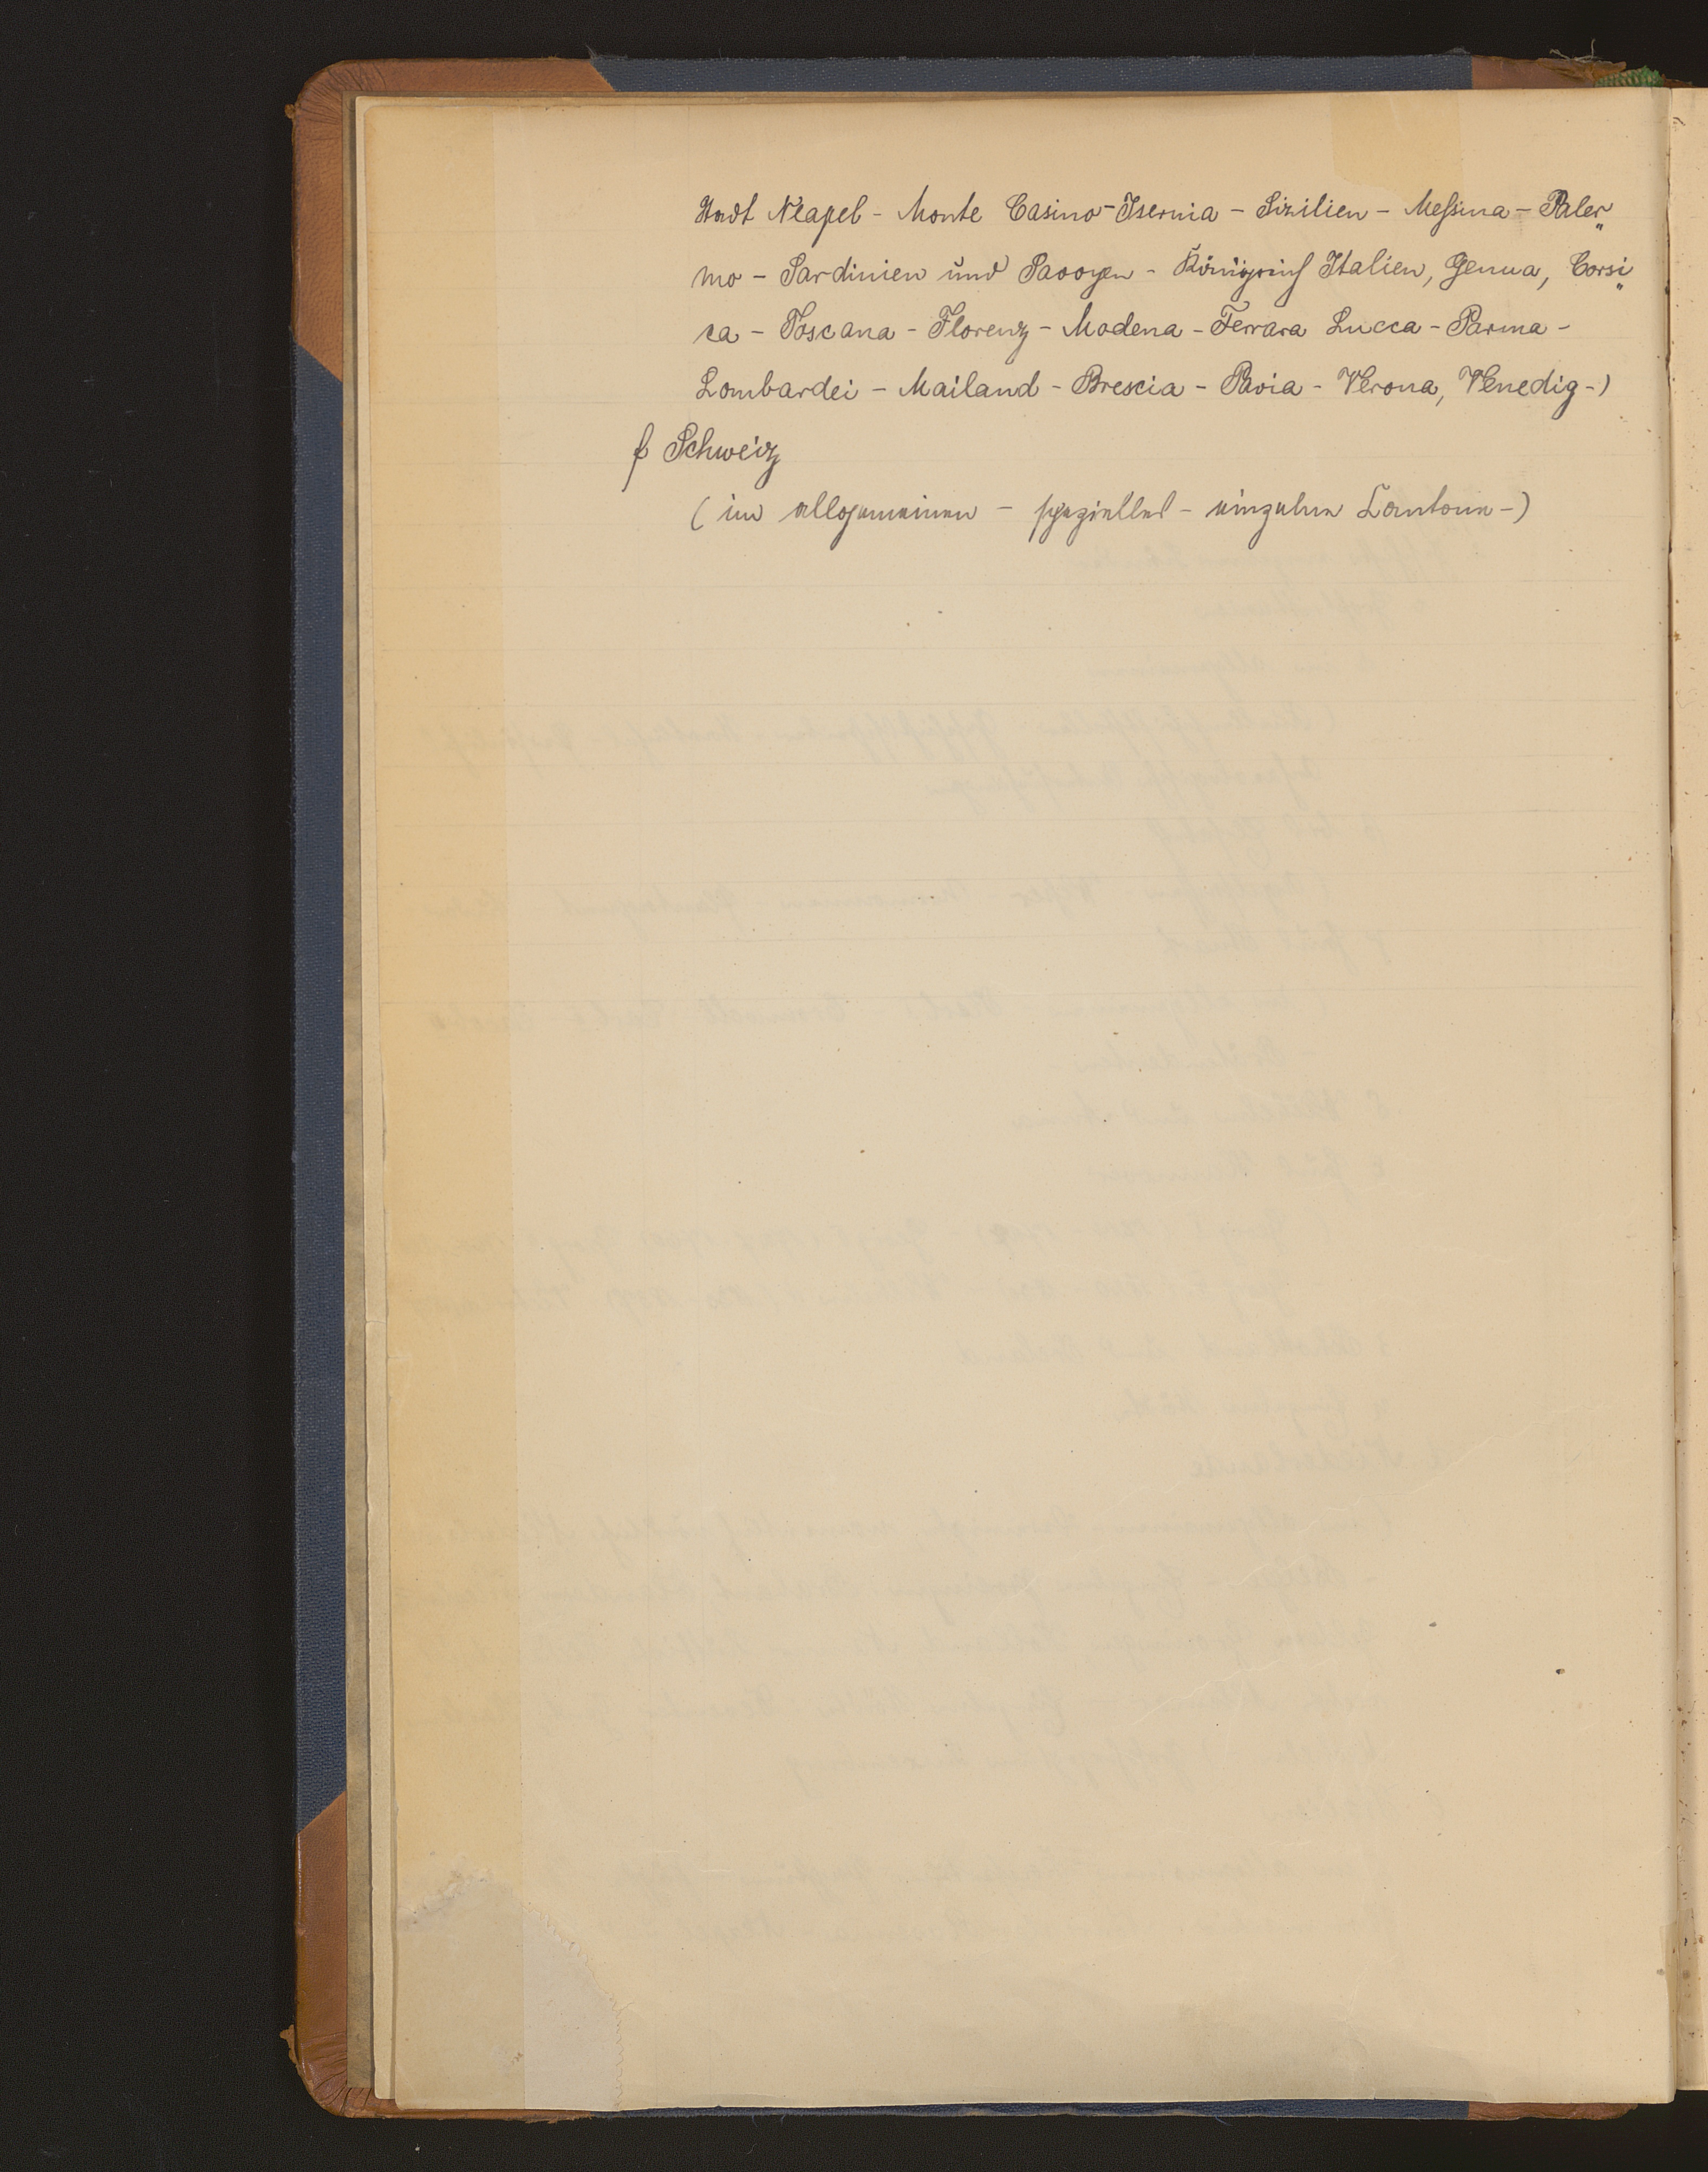 Stadt Neapel - Monte Casino - Isernia - Sizilien - Meſsina - Paler„
mo - Sardinien und Savoyen - Königreich Italien, Genua, Corsi„
ca - Toscana - Florenz - Modena - Ferrara Lucca - Parma -
Lombardei - Mailand - Brescia - Pavia - Verona, Venedig -)
f Schweiz
(im allgemeinen - spezielles - einzelne Cantone -)